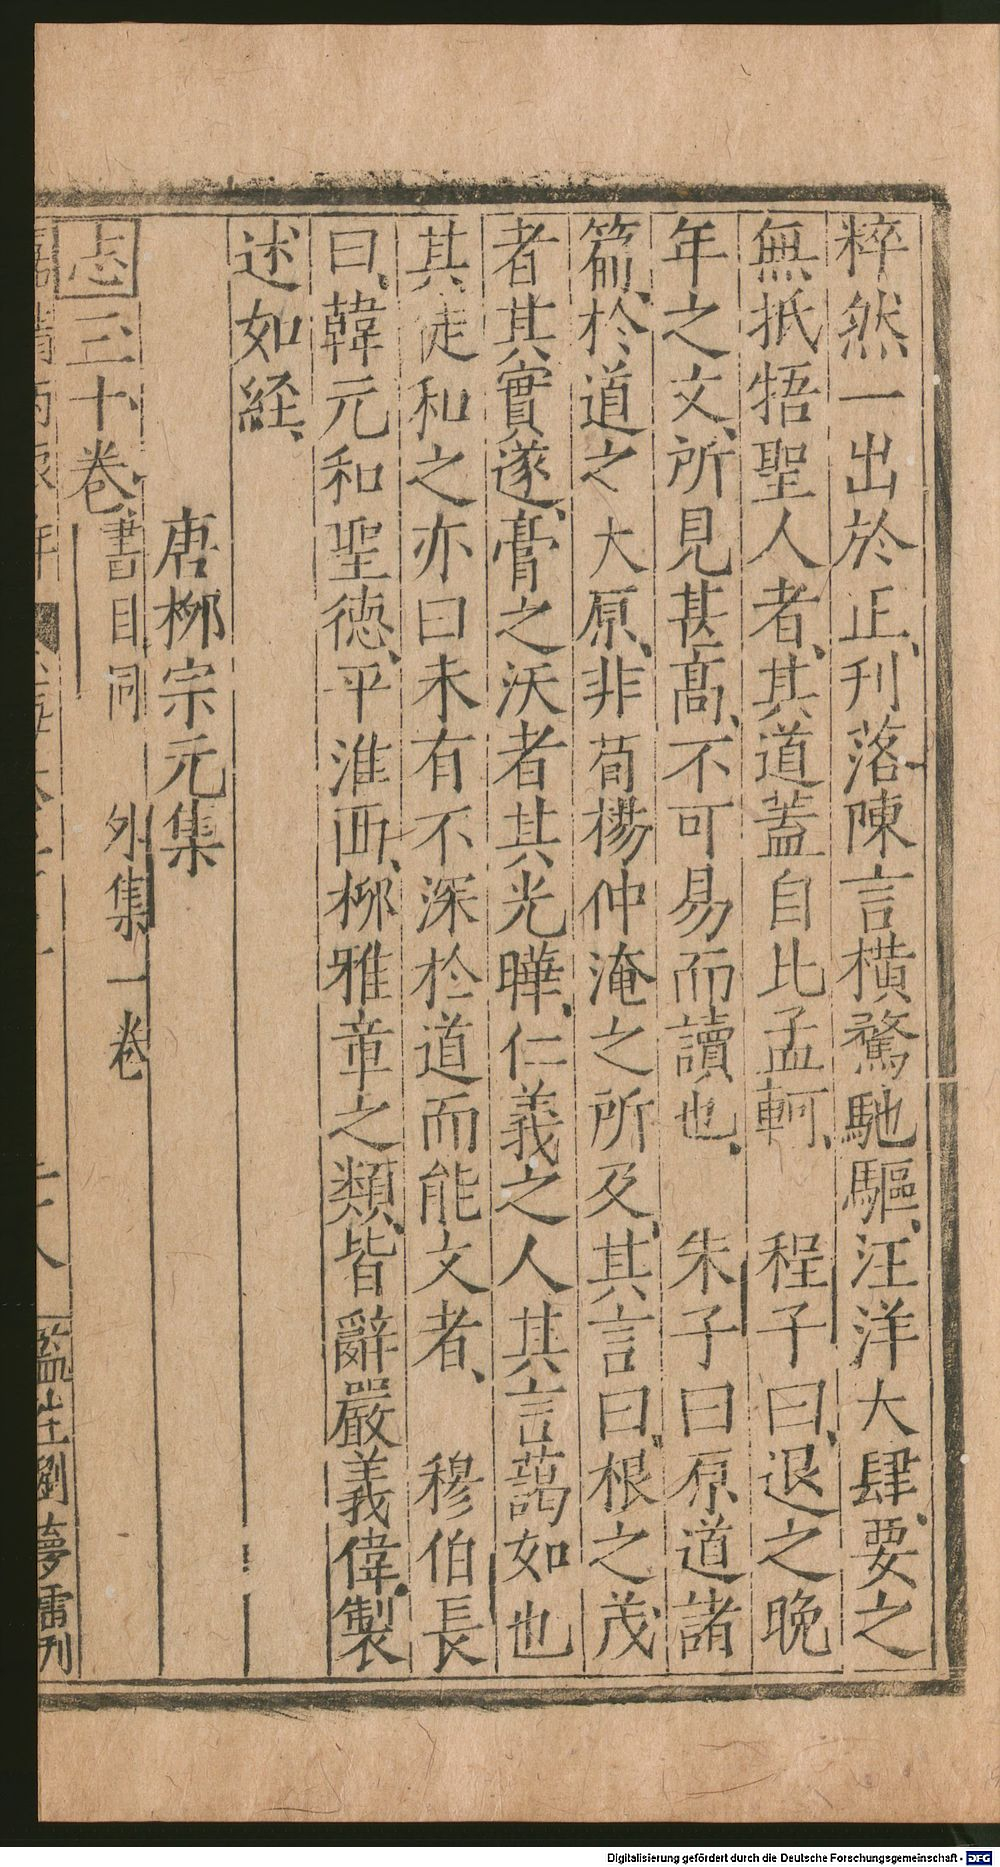 粹然一出於正、刋落陳言橫騖馳驅、汪洋大肆、要之
無抵牾聖人者、其道蓋自比孟軻、　程子曰、退之晚
年之文、所見甚高、不可易而讀也、　朱子曰原道諸
篇、於道之大原、非荀楊仲淹之所及、其言曰、根之茂
者其實遂、膏之沃者其光曄、仁義之人其言藹如也
其徒和之亦曰未有不深於道而能文者、　穆伯長
曰、韓元和聖德、平淮西、柳雅章之類、皆辭嚴義偉、製
述如經、
唐柳宗元集
志三十卷、書目同　外集一卷
劉夢雷刊
Digitalisierung gefördert durch die Deutsche Forschungsgemeinschaft - DFG